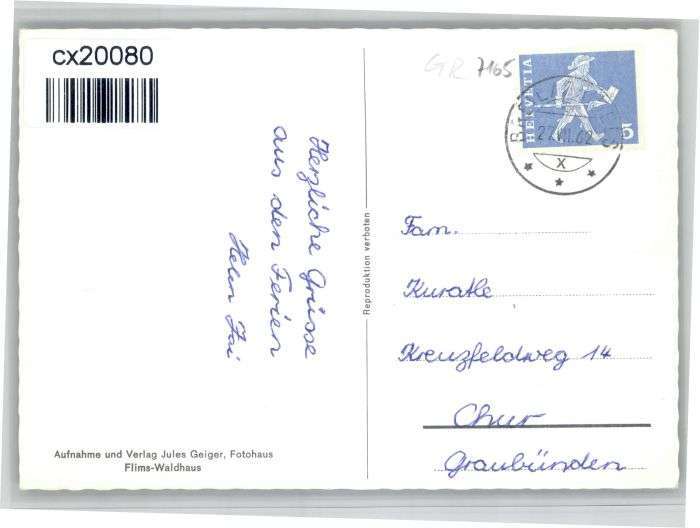 cx20080
GR 7165
HELVETIA
5
27.VII.62
X
Herzliche Grüsse
aus den Ferien
Reproduktion verboten
Fam.
Kuratle
Kreuzfeldweg 14
Chur
Graubünden
Aufnahme und Verlag Jules Geiger, Fotohaus
Flims-Waldhaus